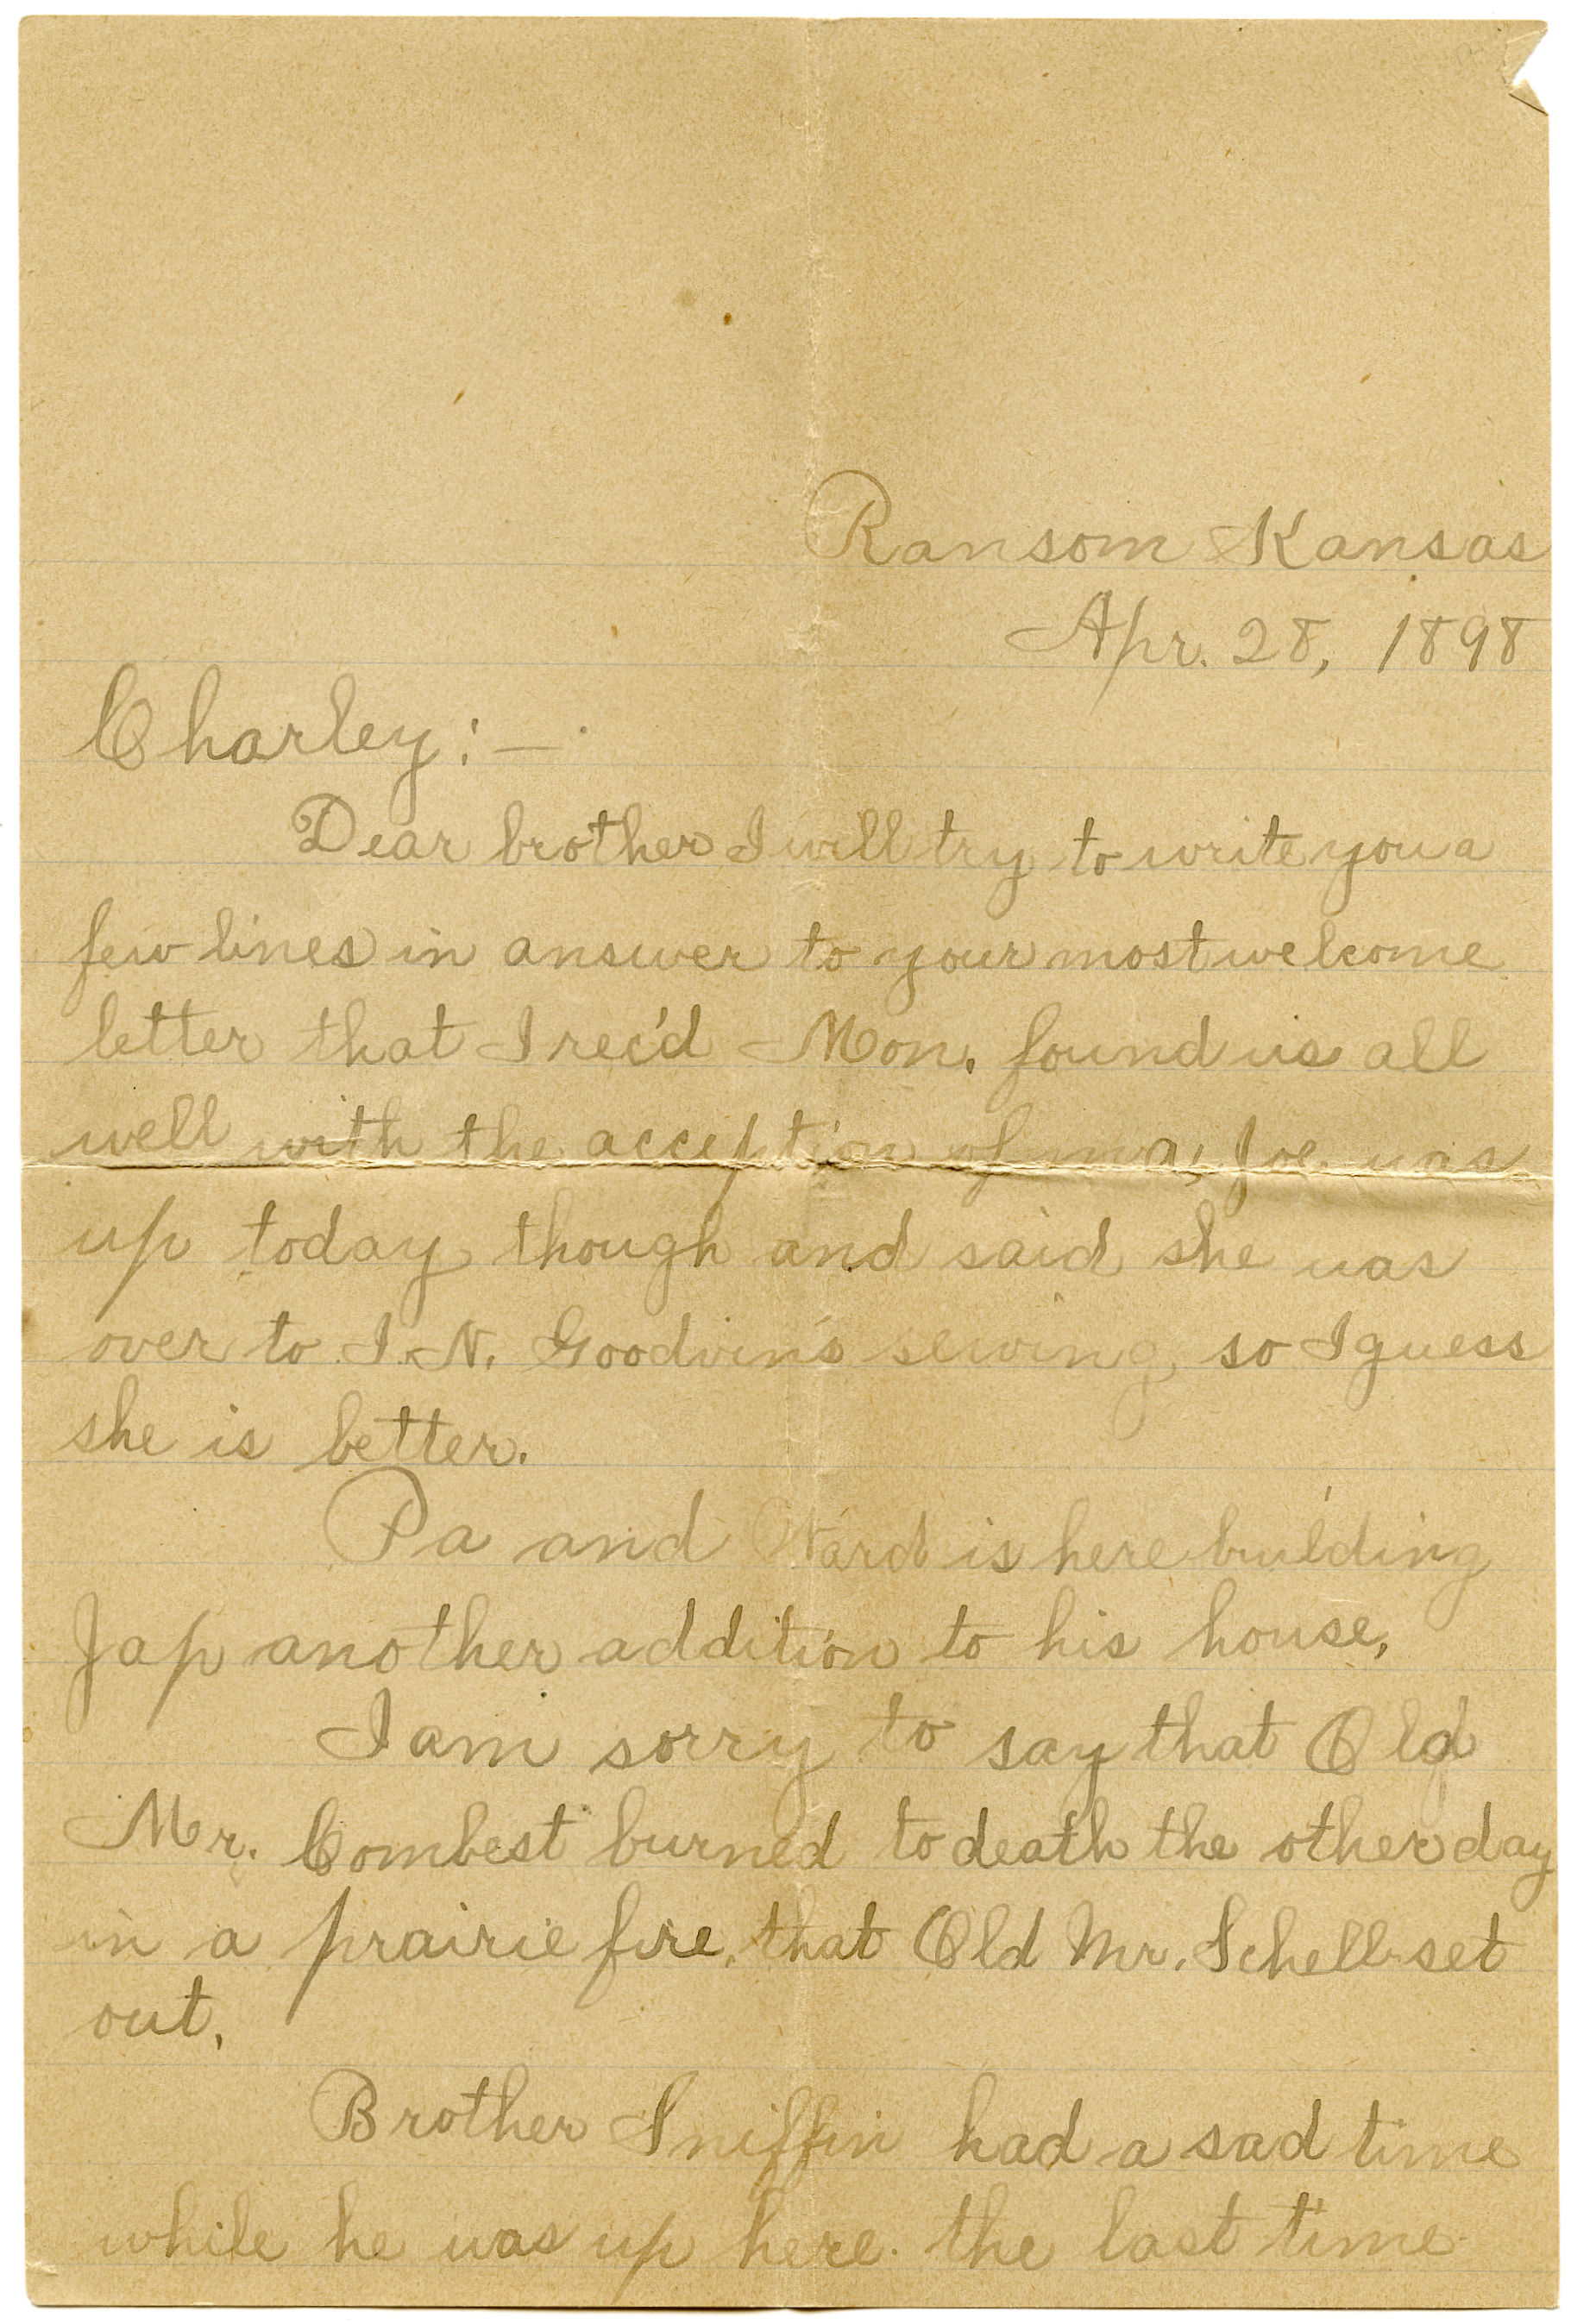 Ransom Kansas
Apr. 28, 1898
Charley:—
Dear brother I will try to write you a
few lines in answer to your most welcome
letter that I rec'd Mon. found us all
well with the acception of ma, Joe was
up today though and said she was
over to I. N. Goodwin's sewing, so I guess
she is better.
Pa and Ward is here building
Jap another addition to his house,
I am sorry to say that Old
Mr. Combest burned to death the other day
in a prairie fire, that Old Mr. Schell set
out.
Brother Sniffin had a sad time
while he was up here the last time